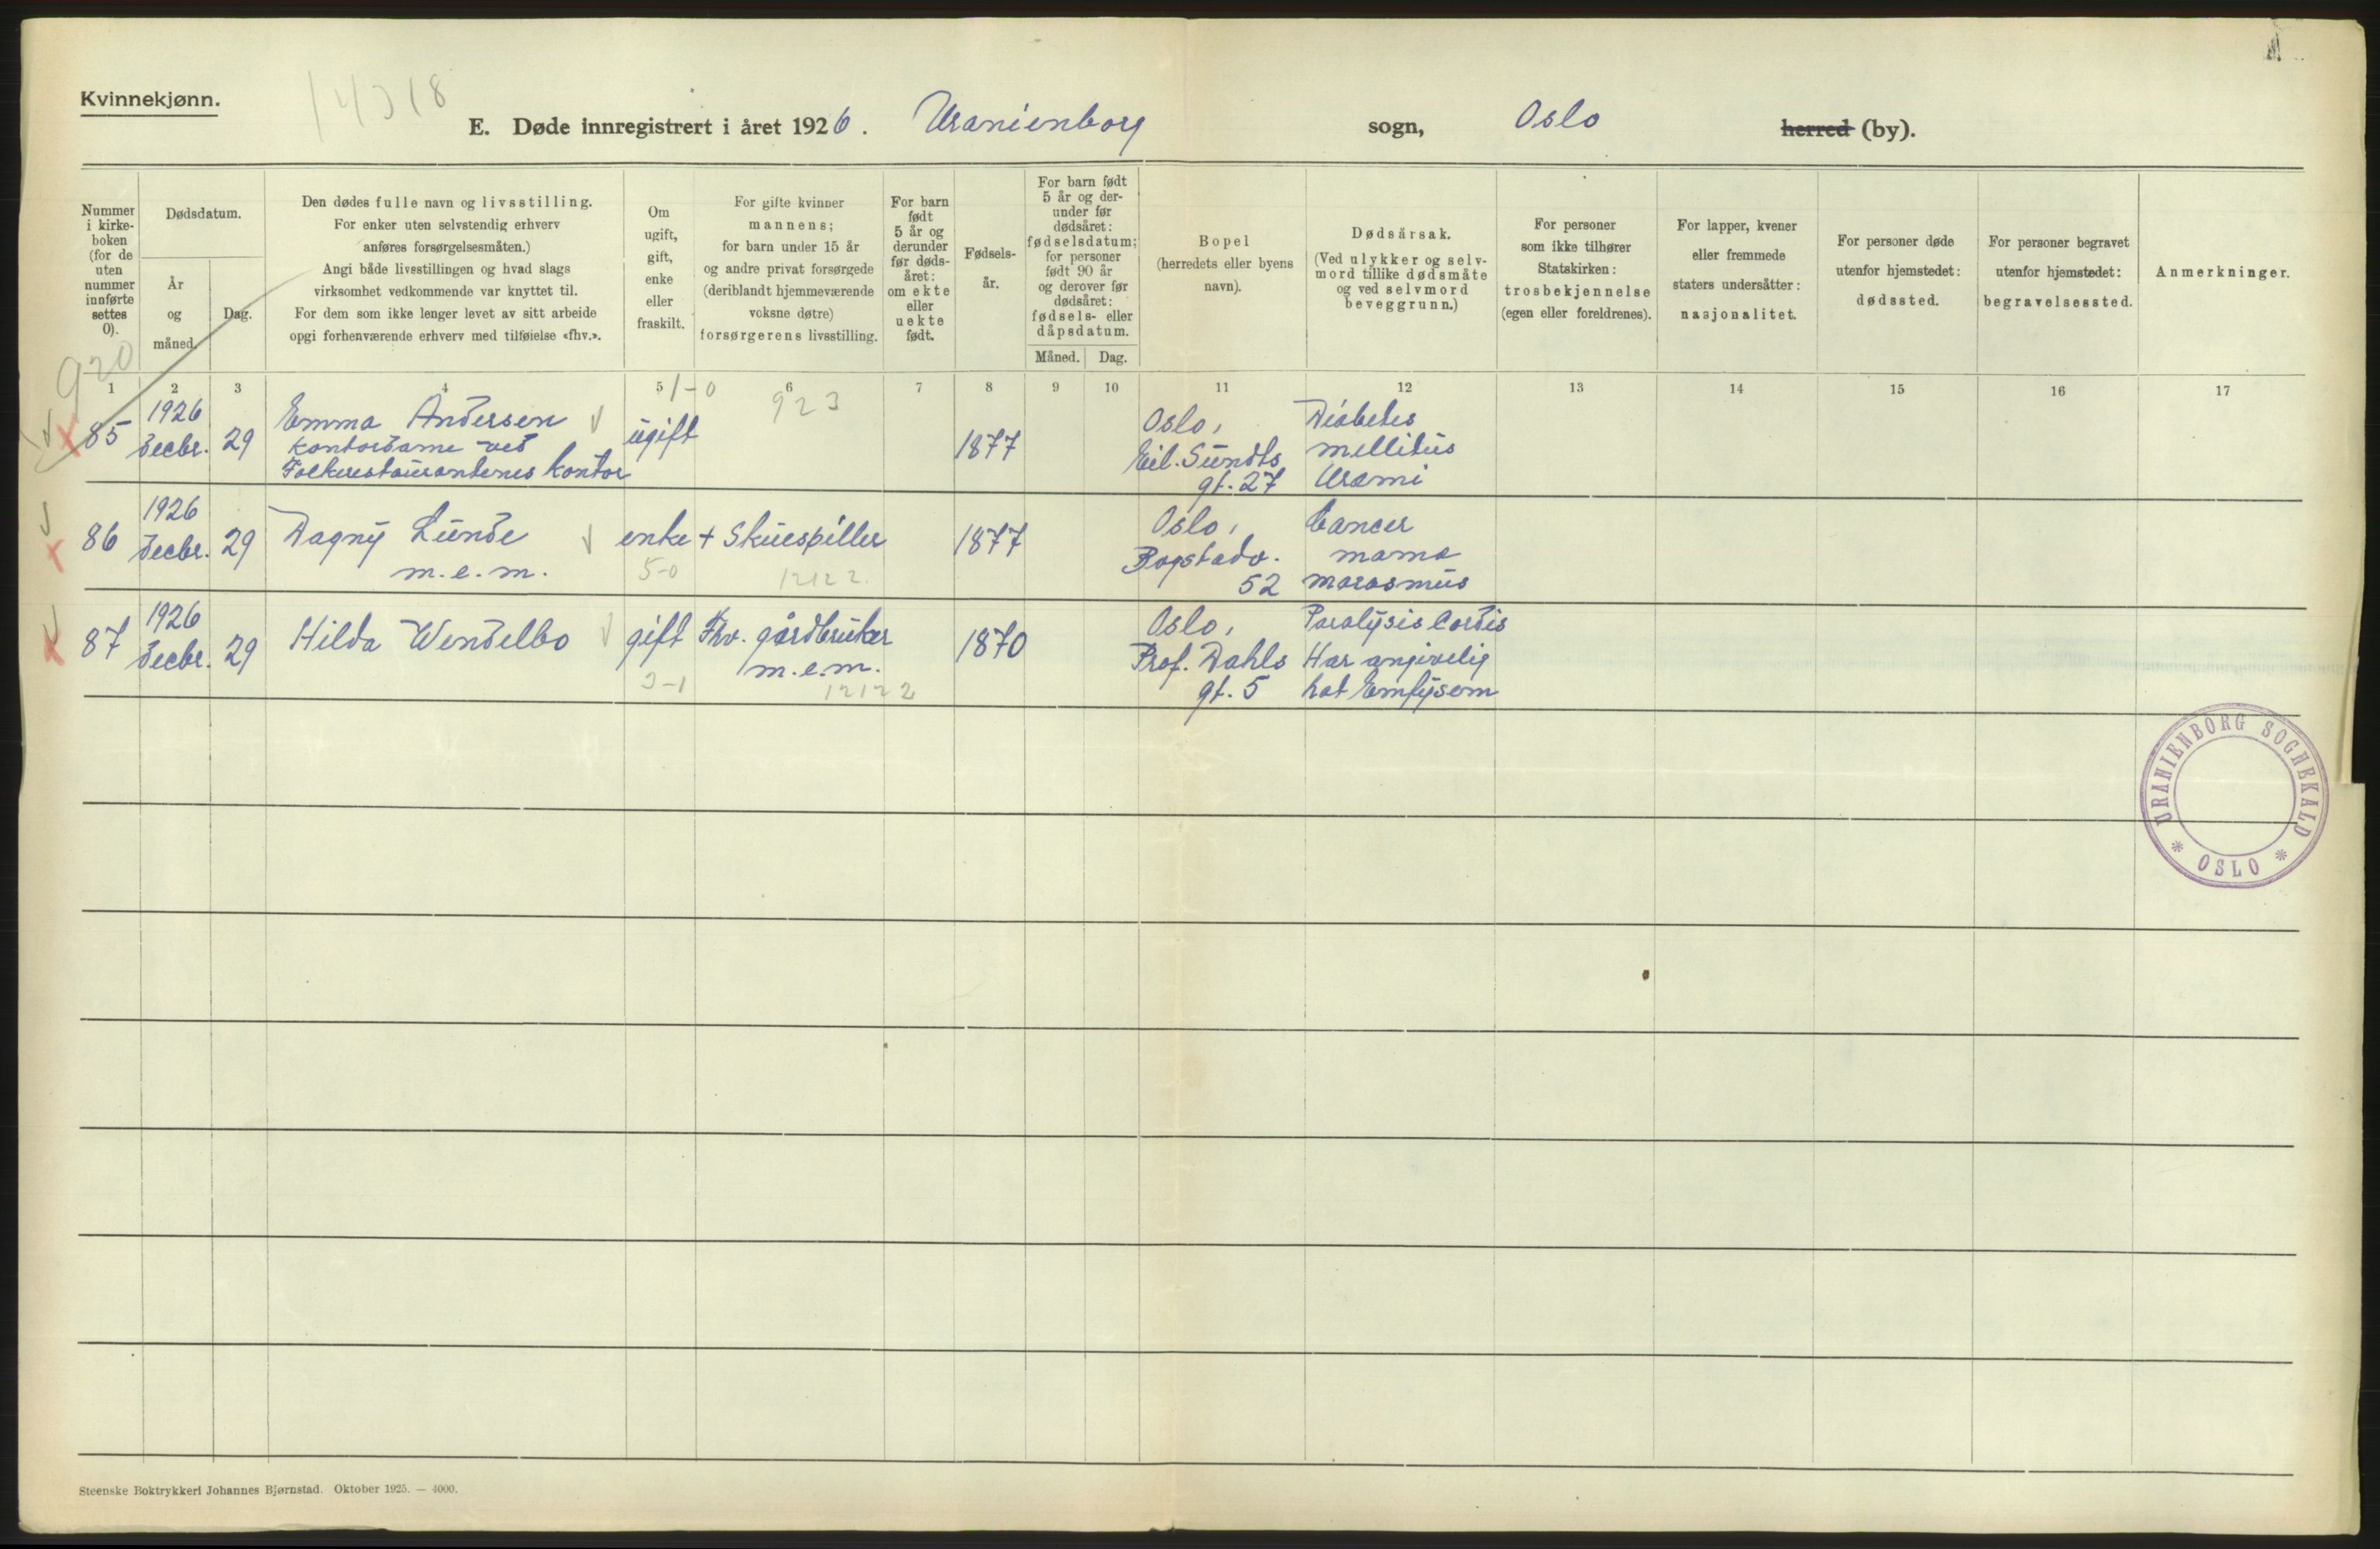 Kvinnekjønn.
14318
E. Døde innregistrert i året 1926. Uranienborg sogn, Oslo herred (by).
Nummer
i kirke-
boken
(for de
uten
nummer
innførte
settes
0).
Dødsdatum.
År
og
måned.
Dag.
Den dødes fulle navn og livsstilling.
For enker uten selvstendig erhverv
anføres forsørgelsesmåten.)
Angi både livsstillingen og hvad slags
virksomhet vedkommende var knyttet til.
For dem som ikke lenger levet av sitt arbeide
opgi forhenværende erhverv med tilføielse «fhv.».
Om
ugift,
gift,
enke
eller
fraskilt.
For gifte kvinner
mannens;
for barn under 15 år
og andre privat forsørgede
(deriblandt hjemmeværende
voksne døtre)
forsørgerens livsstilling.
For barn
født
5 år og
derunder
før døds-
året:
om ekte
eller
uekte
født.
Fødsels-
år.
For barn født
5 år og der-
under før
dødsåret:
fødselsdatum;
for personer
født 90 år
og derover før
dødsåret:
fødsels- eller
dåpsdatum.
Måned. Dag.
Bopel
(herredets eller byens
navn).
Dødsårsak.
(Ved ulykker og selv-
mord tillike dødsmåte
og ved selvmord
beveggrunn.)
For personer
som ikke tilhører
Statskirken:
trosbekjennelse
(egen eller foreldrenes).
For lapper, kvener
eller fremmede
staters undersåtter:
nasjonalitet.
For personer døde
utenfor hjemstedet:
dødssted.
For personer begravet
utenfor hjemstedet:
begravelsessted.
Anmerkninger.
920
1 2 3 4 5 6 7 8 9 10 11 12 13 14 15 16 17
1-0
923
85
1926
Decbr.
29
Emma Andersen
Kontordame ved
Folkerestaurantenes kontor
ugift
1877
Oslo,
Eil. Sundts
gt. 27
Diabetes
mellitus
Uræmi
86
1926
Decbr.
29
Dagny Lunde
m.e.m.
enke
5-0
+ Skuespiller
12122
1877
Oslo,
Bogstadv.
52
Cancer
mama
marasmus
87
1926
Decbr.
29
Hilda Wendelbo
gift
3-1
Fhv. gårdbruker
m.e.m.
12122
1870
Oslo,
Prof. Dahls
gt. 5
Paralysis Cordis
Har angivelig
hat Emfysem
URANIENBORG SOGNEKALD
* OSLO *
Steenske Boktrykkeri Johannes Bjørnstad. Oktober 1925. — 4000.